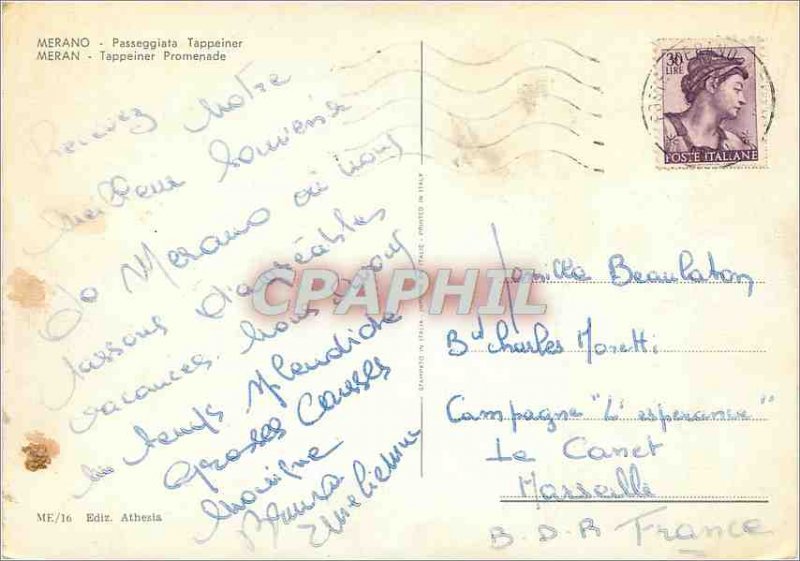 MERANO - Passeggiata Tappeiner
MERAN - Tappeiner Promenade
Recevez Notre
Meilleur Souvenir
De Merano où nous
passons d'agréables
vacances. nous avons
un temps splendide
Grosses Caresses
Monique
ME/16 Ediz. Athesia
STAMPATO IN ITALIA - PRINTED IN ITALY
30
LIRE
POSTE ITALIANE
CPAPHIL
Famille Beaulaton
Bd Charles Moretti
Campagne "L'esperance"
Le Canet
Marseille
B.D.R France